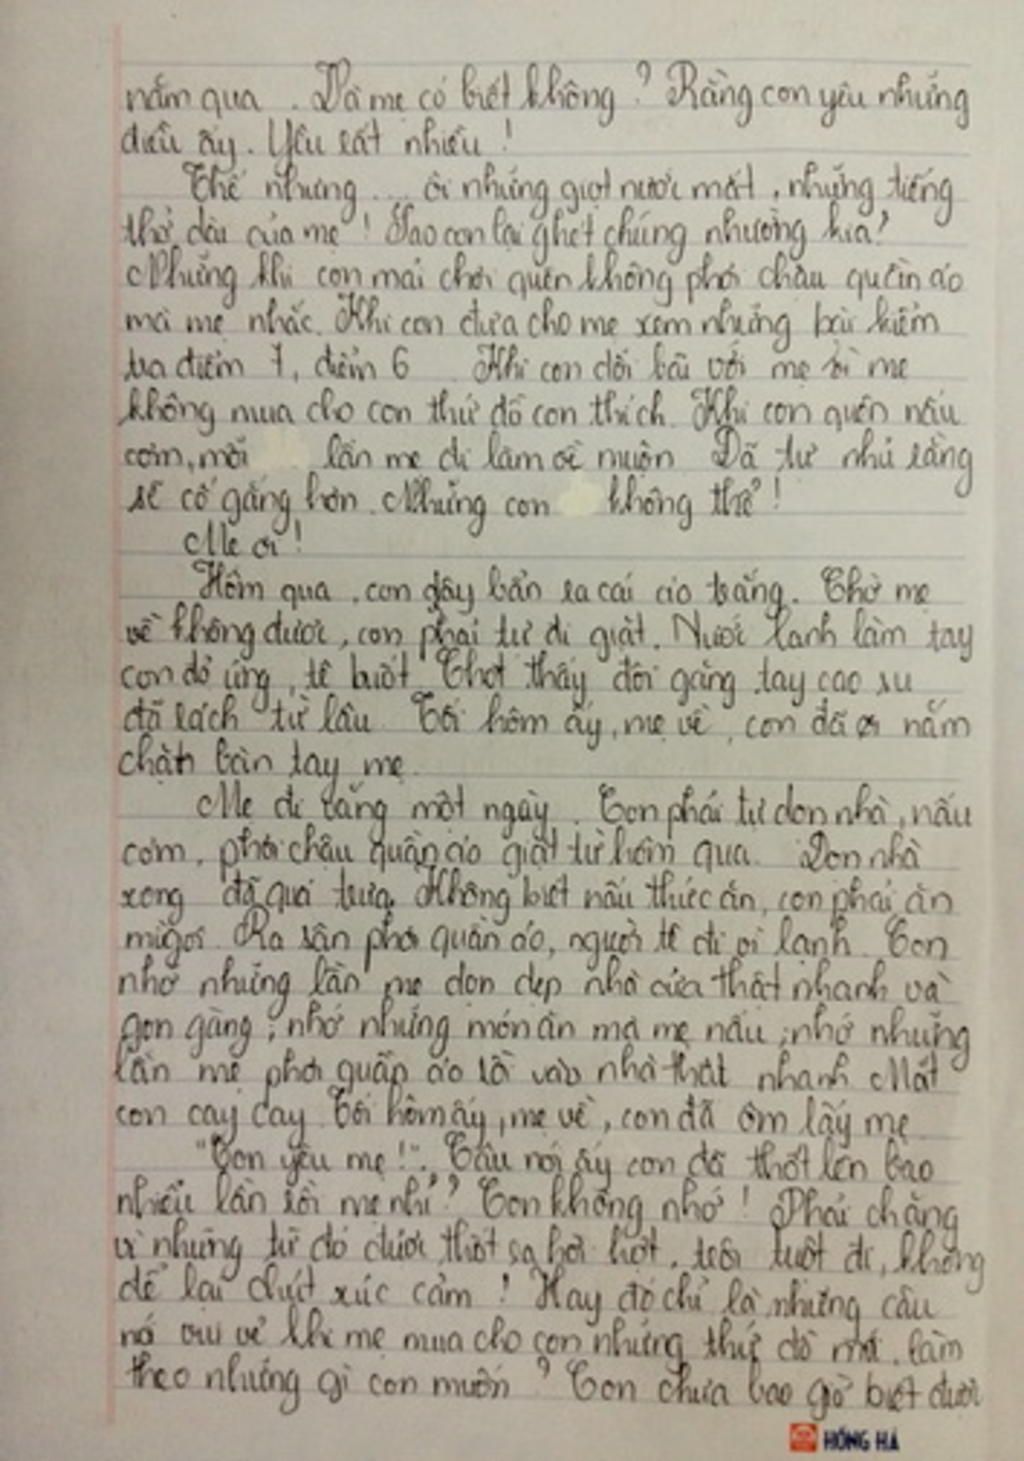 năm qua. Dà mẹ có biết không? Rằng con yêu những
điều ấy. Yêu rất nhiều!
Thế nhưng... ôi những giọt nước mắt, những tiếng
thở dài của mẹ! Sao con lại ghét chúng nhường kia?
Những khi con mải chơi quên không phơi chậu quần áo
mà mẹ nhắc. Khi con đưa cho mẹ xem những bài kiểm
tra điểm 7, điểm 6 Khi con dối với mẹ vì mẹ
không mua cho con thứ đồ con thích. Khi con quên nấu
cơm, mỗi lần mẹ đi làm về muộn Đã tự nhủ rằng
sẽ cố gắng hơn. Nhưng con không thể!
Mẹ ơi!
Hôm qua, con dây bẩn ra cái áo trắng. Chờ mẹ
về không được, con phải tự đi giặt. Nước lạnh làm tay
con đỏ ửng, tê buốt Chợt thấy đôi găng tay cao su
đã rách từ lâu Tối hôm ấy, mẹ về, con đã nắm
chặt bàn tay mẹ.
Mẹ đi vắng một ngày. Con phải tự dọn nhà, nấu
cơm, phơi chậu quần áo giặt từ hôm qua. Dọn nhà
xong đã quá trưa. Không biết nấu thức ăn, con phải ăn
mì gói Ra sân phơi quần áo, người tê đi vì lạnh. Con
nhớ những lần mẹ dọn dẹp nhà cửa thật nhanh và
gọn gàng; nhớ những món ăn mà mẹ nấu; nhớ những
lần mẹ phơi quần áo rồi vào nhà thật nhanh Mắt
con cay cay Tối hôm ấy, mẹ về, con đã ôm lấy mẹ
"Con yêu mẹ!". Câu nói ấy con đã thốt lên bao
nhiêu lần rồi mẹ nhỉ? Con không nhớ! Phải chăng
vì những từ đó được thốt ra hời hợt, trôi tuột đi, không
để lại chút xúc cảm! Hay đó chỉ là những câu
nó vui vẻ khi mẹ mua cho con những thứ đồ mới, làm
theo những gì con muốn? Con chưa bao giờ biết được
HỒNG HÀ